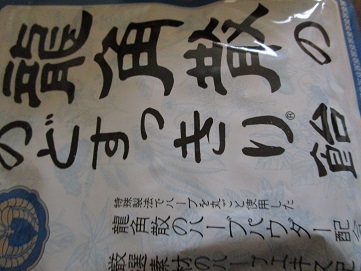 龍角散の
のどすっきり®飴
特殊製法でハーブを丸ごと使用した
龍角散のハーブパウダー配
厳選素材のハーブエキス